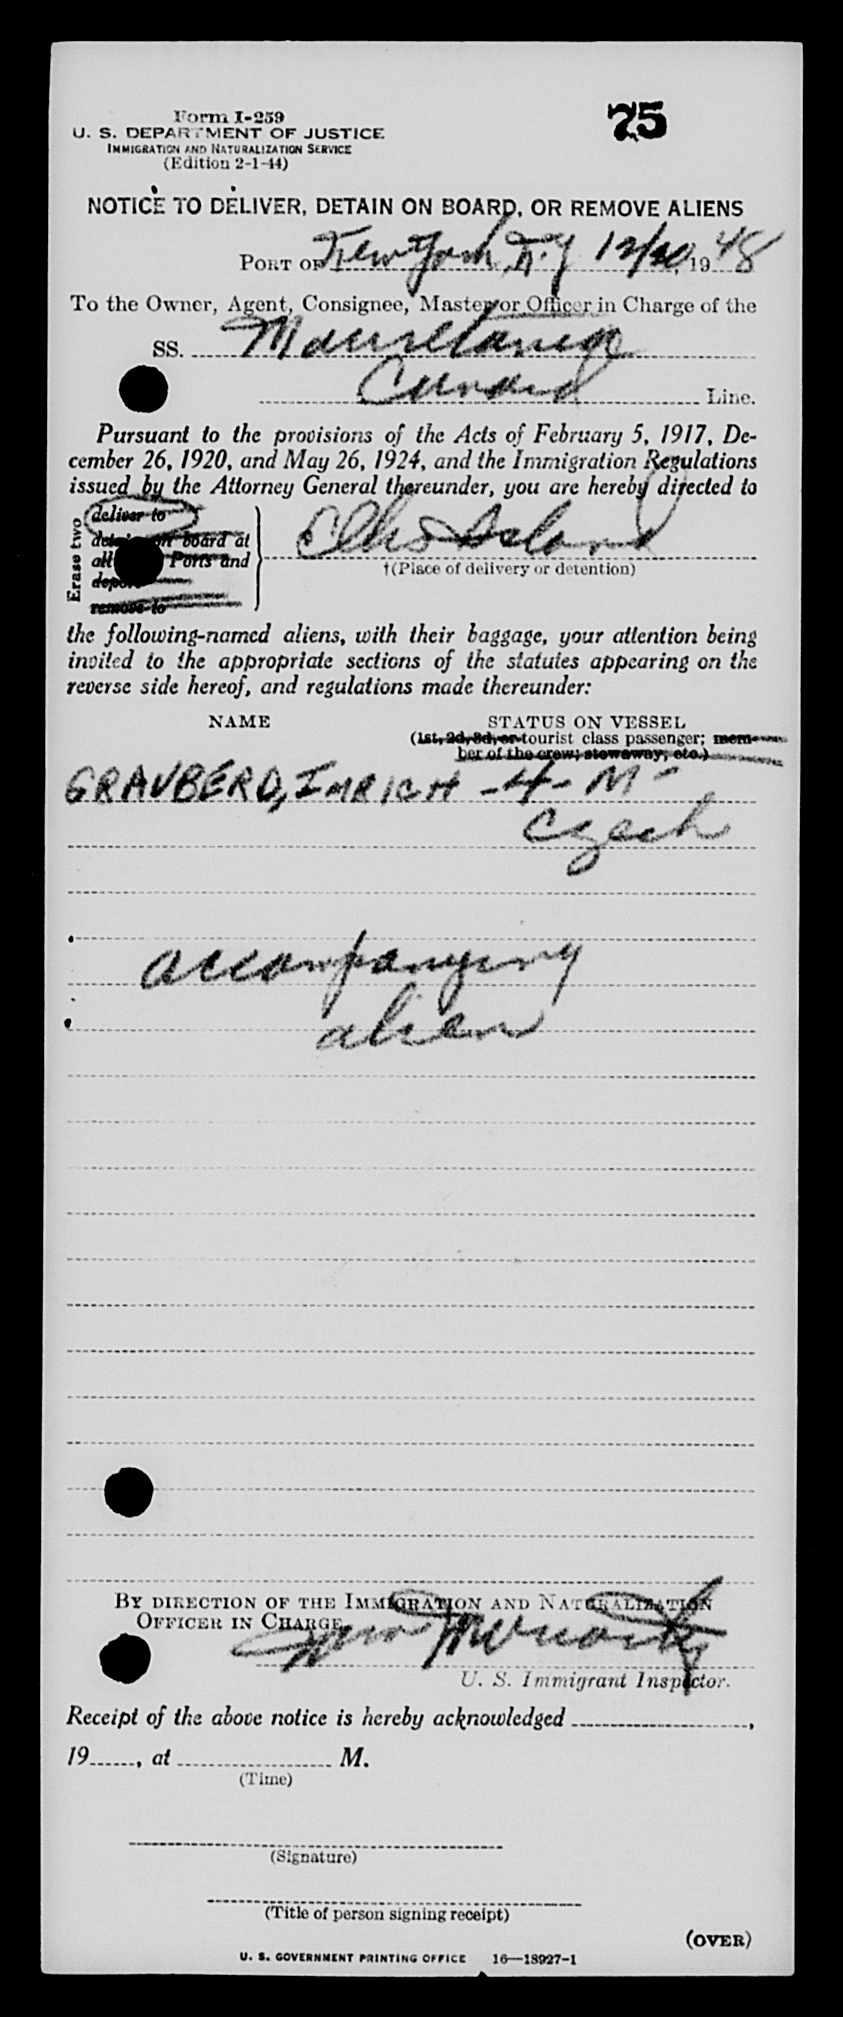 75
Form I-259
U. S. DEPARTMENT OF JUSTICE
IMMIGRATION AND NATURALIZATION SERVICE
(Edition 2-1-44)
NOTICE TO DELIVER, DETAIN ON BOARD, OR REMOVE ALIENS
PORT OF New York, N.Y 12/20, 1948
To the Owner, Agent, Consignee, Master or Officer in Charge of the
SS. Mauretania
Cunard Line.
Pursuant to the provisions of the Acts of February 5, 1917, De-
cember 26, 1920, and May 26, 1924, and the Immigration Regulations
issued by the Attorney General thereunder, you are hereby directed to
Erase two
deliver to
detain on board at
all Ports and
deport
remove to
Ellis Island
†(Place of delivery or detention)
the following-named aliens, with their baggage, your attention being
invited to the appropriate sections of the statutes appearing on the
reverse side hereof, and regulations made thereunder:
NAME STATUS ON VESSEL
(1st, 2d, 3d, or tourist class passenger; mem-
ber of the crew; stowaway, etc.)
GRAUBERD, IMRICH -4- M-
Czech
accompanying
alien
BY DIRECTION OF THE IMMIGRATION AND NATURALIZATION
OFFICER IN CHARGE
U. S. Immigrant Inspector.
Receipt of the above notice is hereby acknowledged ,
19 , at M.
(Time)
(Signature)
(Title of person signing receipt)
(OVER)
U. S. GOVERNMENT PRINTING OFFICE 16—18927-1